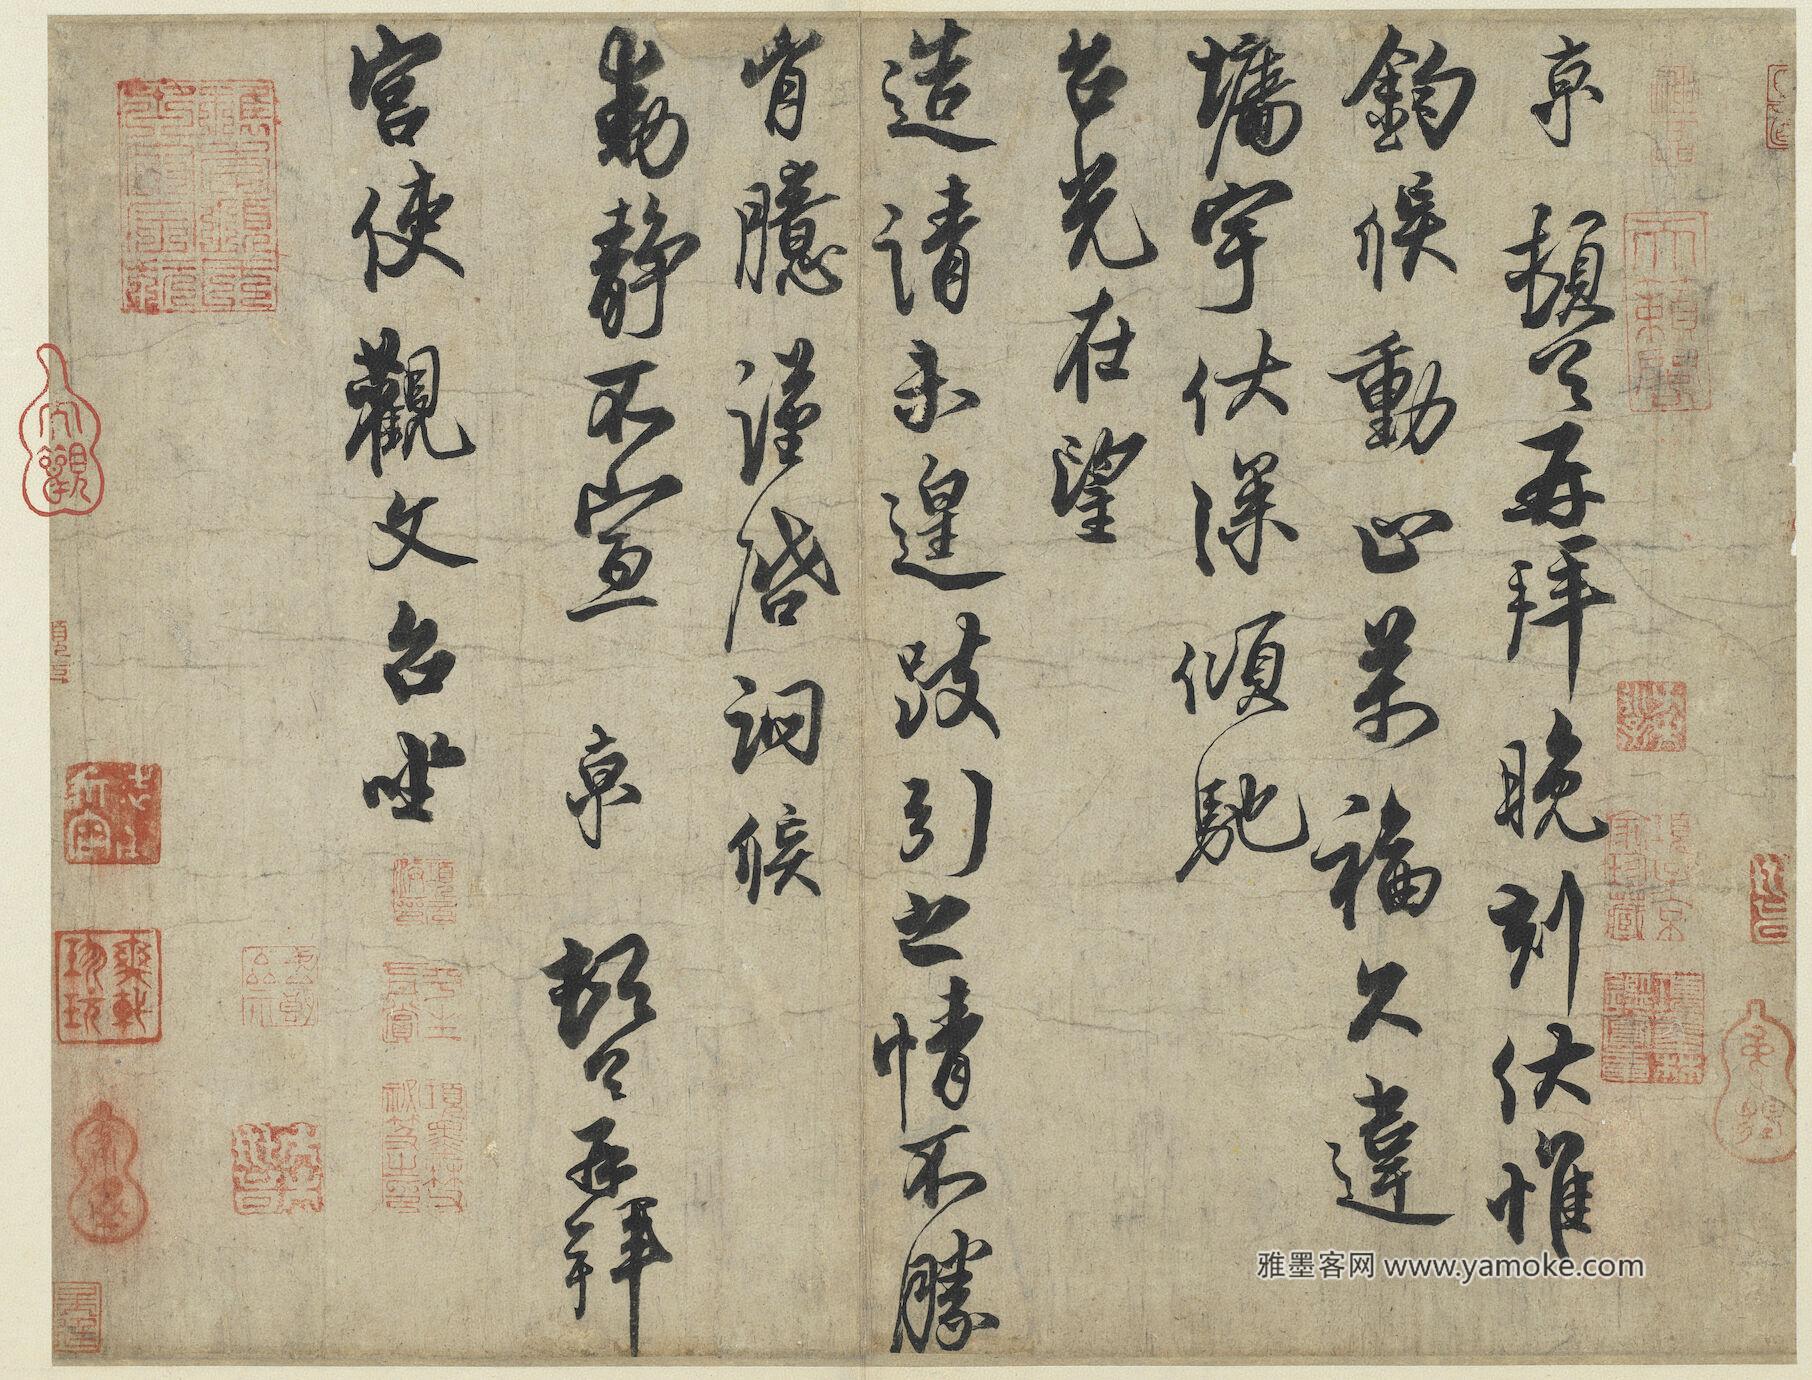 京 頓首再拜晚刻伏惟
鈞候動止萬福久違
墉宇伏深傾馳
台光在望
造請未遑跂引之情不勝
胷臆謹啓詗候
動靜不宣 京 頓首再拜
宮使觀文台坐
雅墨客网 www.yamoke.com